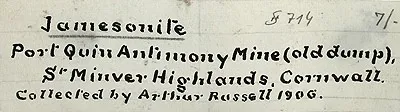 Jamesonite § 714 7/-
Port Quin Antimony Mine (old dump),
St Minver Highlands, Cornwall.
Collected by Arthur Russell 1906.